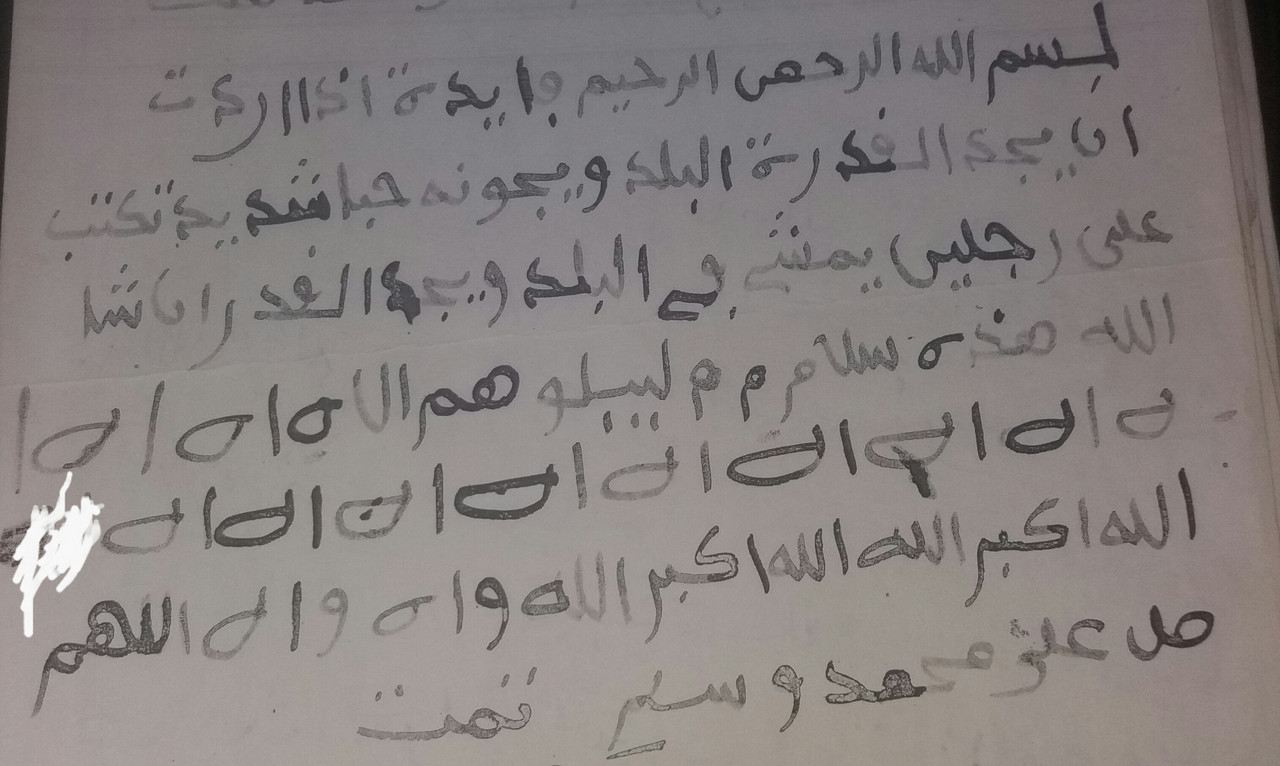 بسم الله الرحمن الرحيم فايدة اذا اردت
ان يجد القدرة البلد ويحبونه حبا شديد تكتب
على رجلين يمشي في البلد ويجد القدر ان شا
الله هذه سلام م م ليبلو هم الا ه ا ه ا ه ا
ه ا له ا ا له ا ا له ا
الله اكبر الله الله اكبر الله و ا ه و ا له اللهم
صل على محمد وسلم تمت